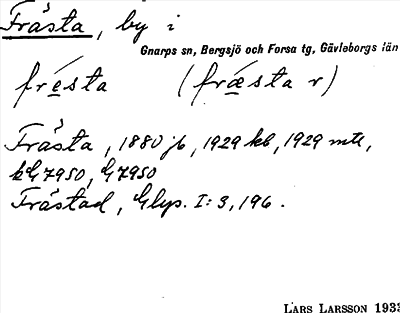 Frästa, by i
Gnarps sn, Bergsjö och Forsa tg, Gävleborgs län
fre̲sta (fræ̲sta r)
Frästa, 1880 jb, 1929 kb, 1929 mtl,
kG7950, G7950
Fråstad, Glys. I: 3, 196.
LARS LARSSON 1933